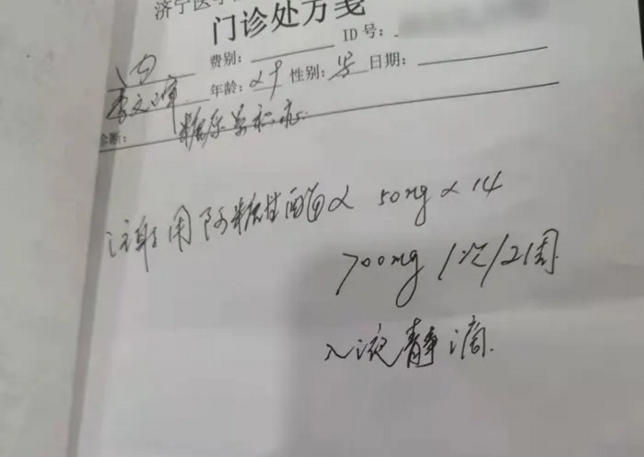 济宁医学
门诊处方笺
费别: ID号:
内
李文 年龄: 24 性别: 男 日期:
诊断: 糖原累积症
注射用阿糖苷酶α 50mg×14
700mg 1次/2周
入液静滴.